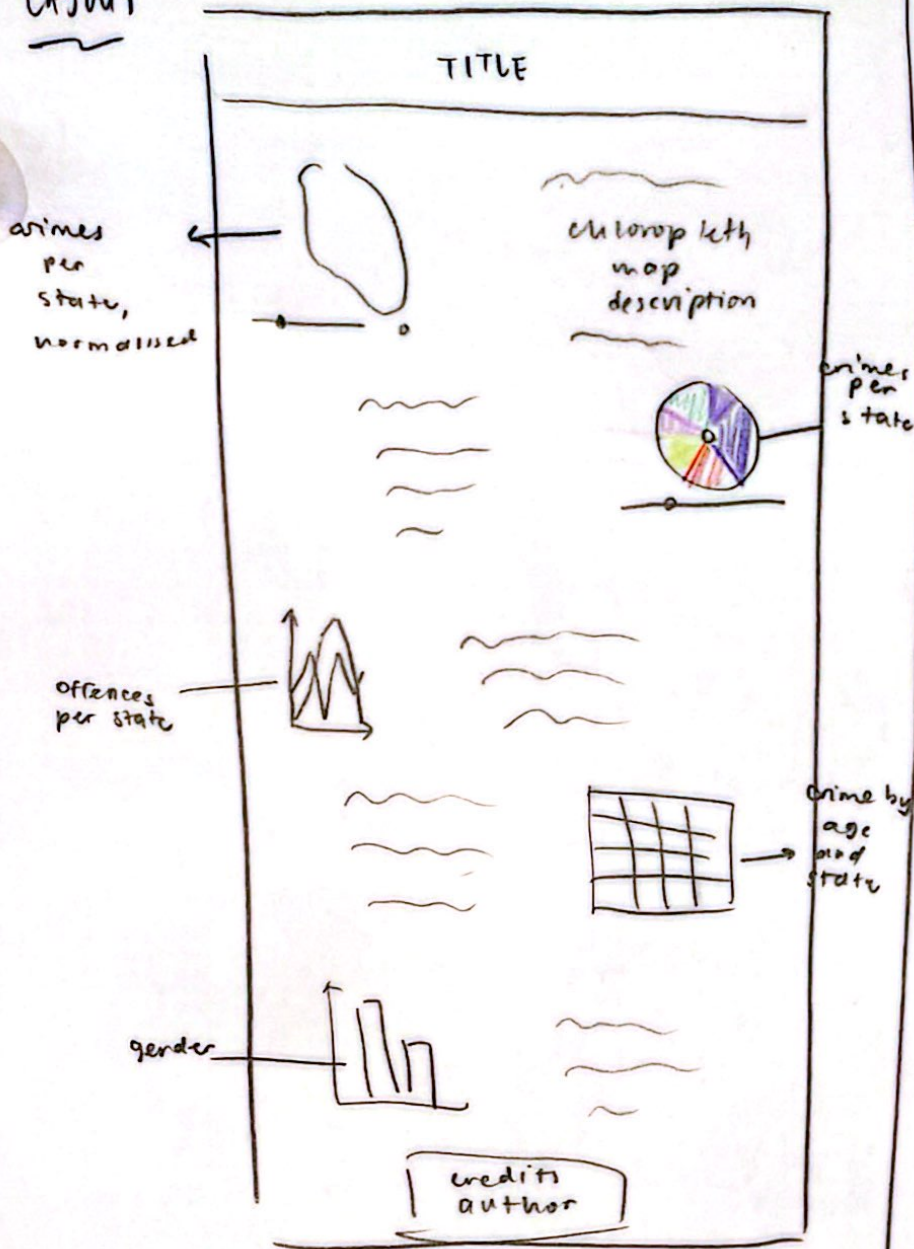 TITLE
crimes
per
state,
normalised
chloropleth
map
description
crimes
per
state
offences
per state
crime by
age
and
state
gender
credits
author